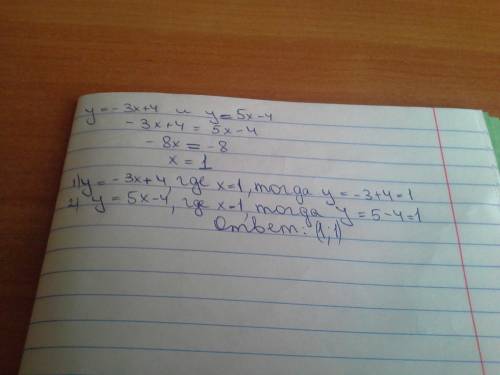 y=-3x+4 и y=5x-4
-3x+4=5x-4
-8x=-8
x=1
1) y=-3x+4, где x=1, тогда y=-3+4=1
2) y=5x-4, где x=1, тогда y=5-4=1
Ответ: (1;1)